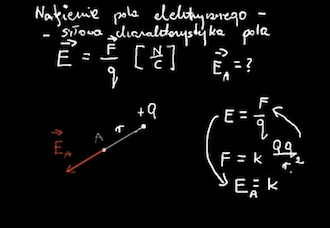 Natężenie pola elektrycznego -
- siłowa charakterystyka pola
E = F/q [N/C] E_A = ?
+Q
r
A
E_A
E = F/q
F = k Qq/r²
E_A = k